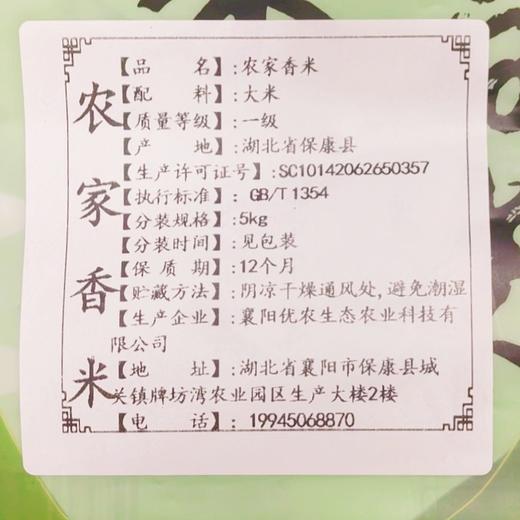 农家香米
【品 名】:农家香米
【配 料】:大米
【质量等级】:一级
【产 地】:湖北省保康县
【生产许可证号】:SC10142062650357
【执行标准】: GB/T1354
【分装规格】:5kg
【分装时间】:见包装
【保 质 期】:12个月
【贮藏方法】:阴凉干燥通风处,避免潮湿
【生产企业】:襄阳优农生态农业科技有
限公司
【地 址】:湖北省襄阳市保康县城
关镇牌坊湾农业园区生产大楼2楼
【电 话】:19945068870